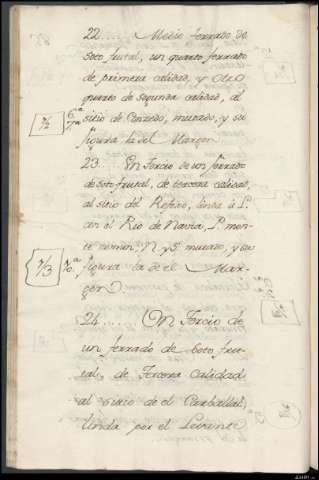 22.... Medio ferrado de
Soto frutal, un quarto ferrado
de primera calidad, y otro
quarto de segunda calidad, al
sitio de Conredo, murado, y su
figura la del Margen
23.... Un Tercio de un ferrado
de soto frutal, de tercera calidad,
al sitio del Refoxo, linda á L.
con el Rio de Navia, P. mon-
te comun, N. y S. murado, y su
figura la de el Mar-
gen
24.... Un Tercio de
un ferrado de Soto fru-
tal, de Tercera Calidad
al sitio de el Carballal
linda por el Levante